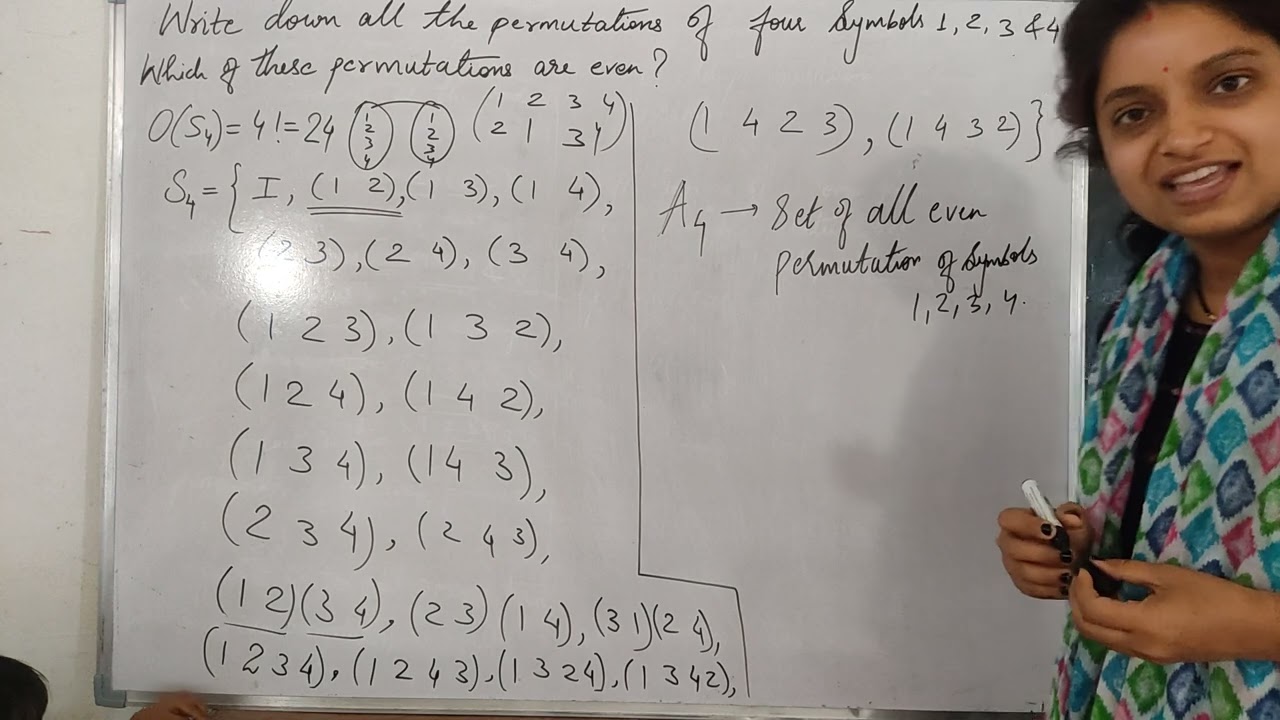 Write down all the permutations of four symbols 1, 2, 3 & 4
Which of these permutations are even?
O(S₄) = 4! = 24
1
2
3
4
1
2
3
4
( 1 2 3 4
2 1 3 4 )
S₄ = { I, (1 2), (1 3), (1 4),
(2 3), (2 4), (3 4),
(1 2 3), (1 3 2),
(1 2 4), (1 4 2),
(1 3 4), (1 4 3),
(2 3 4), (2 4 3),
(1 2)(3 4), (2 3)(1 4), (3 1)(2 4),
(1 2 3 4), (1 2 4 3), (1 3 2 4), (1 3 4 2),
(1 4 2 3), (1 4 3 2)}
A₄ → Set of all even
permutation of symbols
1, 2, 3, 4.